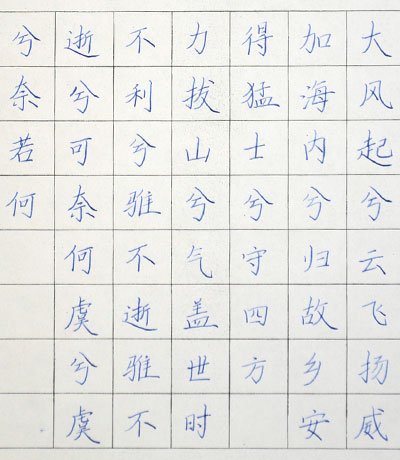 大风起兮云飞扬威
加海内兮归故乡安
得猛士兮守四方
力拔山兮气盖世时
不利兮骓不逝骓不
逝兮可奈何虞兮虞
兮奈若何